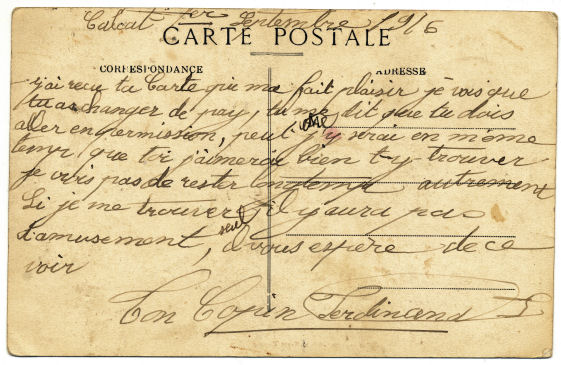 Calcat 1er Septembre 1916
CARTE POSTALE
CORRESPONDANCE
ADRESSE
j'ai reçu ta Carte qui ma fait plaisir je vois que
tu as changer de pay, tu me dit que tu dois
aller en permission, peut être j'y serai en même
temp que toi j'aimerai bien t-y-trouver
je vois pas de rester longtemp autrement
Si je me trouver seul il y aura pas
d'amusement, vous espère de ce
voir
Ton Copin Ferdinand